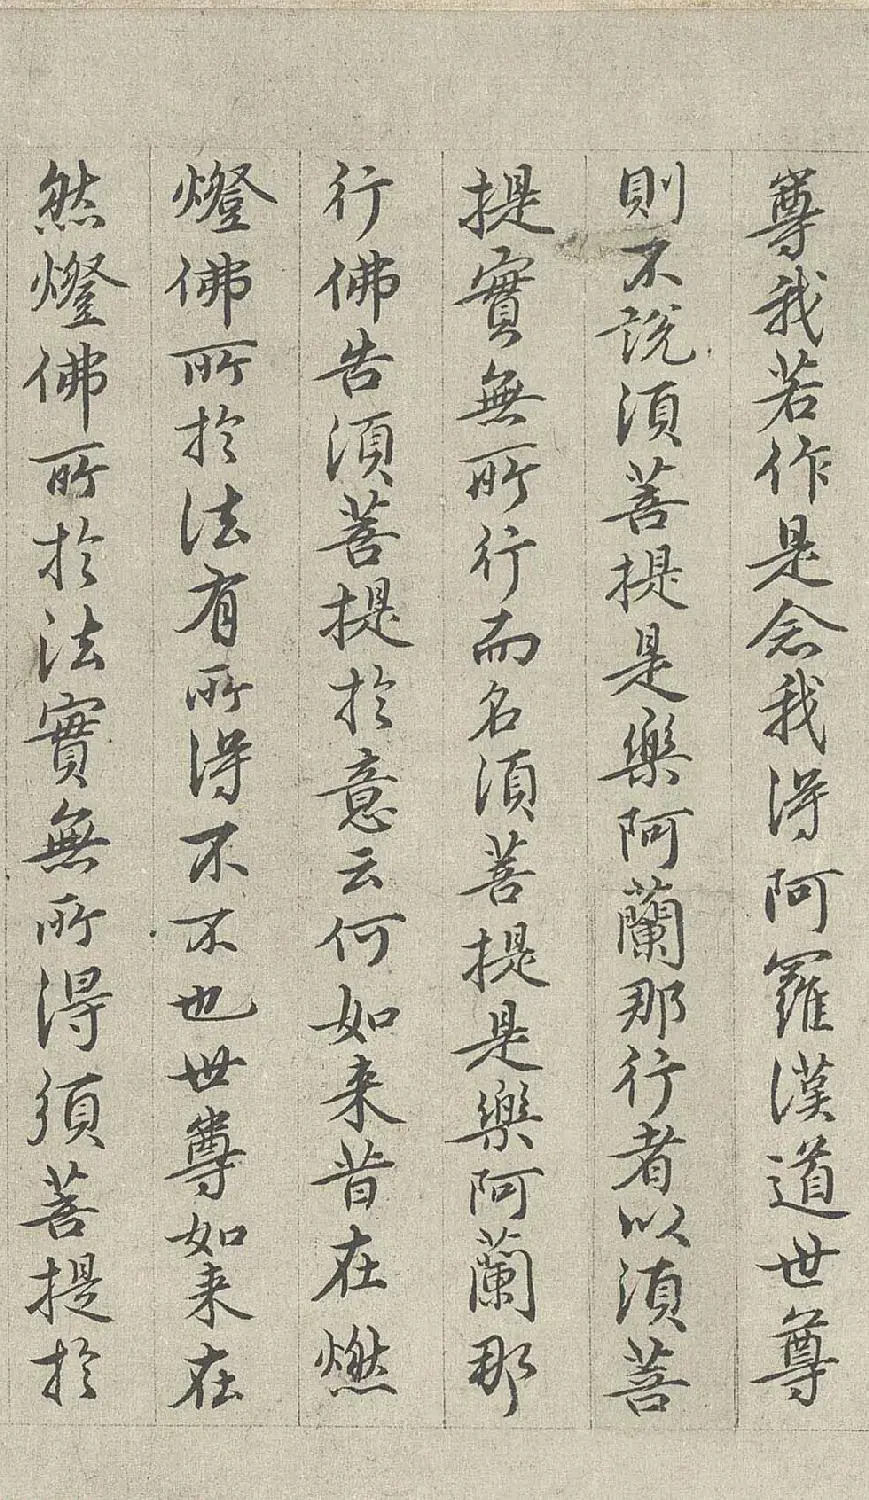 尊我若作是念我得阿羅漢道世尊
則不說須菩提是樂阿蘭那行者以須菩
提實無所行而名須菩提是樂阿蘭那
行佛告須菩提於意云何如来昔在燃
燈佛所於法有所得不不也世尊如来在
然燈佛所於法實無所得須菩提於